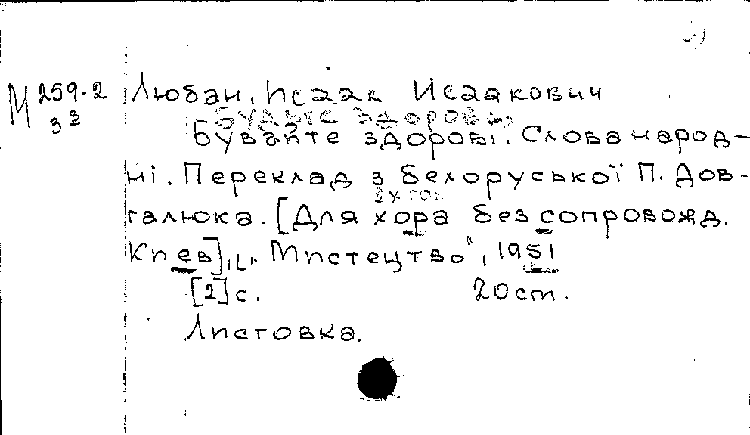 М 259-2
33
Любан, Исаак Исаакович
Будьте здоровы
Бувайте здорові. Слова народ-
ні. Переклад з білоруської П. Дов-
2х гол.
галюка. [Для хора без сопровожд.
Киев], "Мистецтво", 1951
[2] с. 20 см.
Листовка.